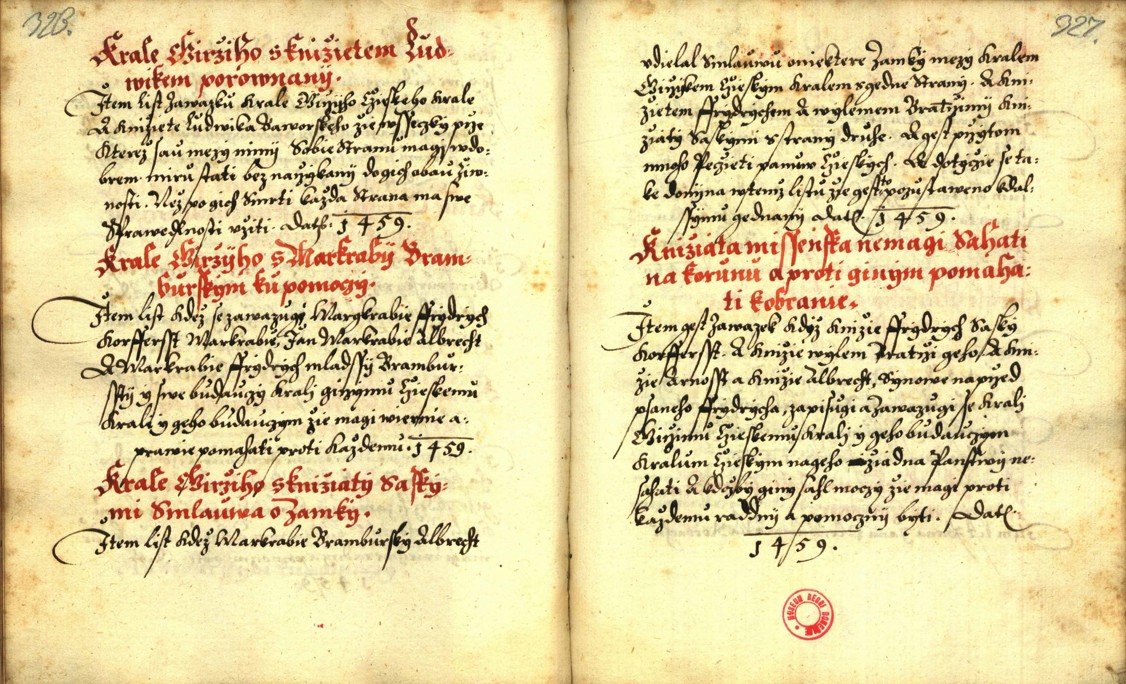 328.
Krale Girziho s knizietem Lud-
wikem porownany.
Item list Zawazku Krale Girzyho Czieskeho Krale
A Knizete Ludwika Baworskeho zie wsseczky prze
Kterez sau mezy nimi Sobie Stranu magi w do-
brem miru stati bez narzykany do gich obau ziw-
nosti. Nez po gich Smrti kazda Strana ma swe
Sprawedlnosti uziti. Dat. 1459.
Krale Girzyho s Markraby Bram-
burskym ku pomoczy.
Item list Kdez se zawazugi Margkrabie ffrydrych
Korfferst Markrabie, Jan Markrabie Albrecht
A Markrabie ffrydrych mladssy Brambur-
sstij y swe buduczy Krali Girzymu Czieskemu
Krali y geho buduczym zie magi wiernie a
prawie pomahati proti kazdemu. 1459.
Krale Girziho s kniziaty Sasky-
mi Smlauwa o Zamky.
Item list Kdez Markrabie Bramburský Albrecht
327.
udielal Smlauwu o niektere Zamky mezy Kralem
Girzykem Czieskym Kralem s gedne Strany. A Kni-
zietem ffrydrychem A wylemem Bratrzimi Kni-
ziaty Saskymi s strany druhe. A gest przytom
mnoho Peczieti panuw Czieskych. A dotycze se ta-
ke donina w temz listu zie gest to pozustaweno k dal-
ssymu gednany Dat. 1459.
Kniziata missenska nemagi Sahati
na korunu a proti ginym pomaha-
ti k obranie.
Item gest Zawazek Kdyz Knizie ffrydrych Sasky
Korfferst. A Knizie wylem Bratrzi geho, A Kni-
zie Arnosst a Knizie Albrecht, Synowe naprzed
psaneho ffrydrycha, zapisugi a zawazugi se Krali
Girzimu Czieskemu Krali y geho buduczym
Kralum Czieskym na geho ziadna Panstwy ne-
sahati A kdozby giny sahl moczy zie magi proti
kazdemu raddni a pomoczni byti. Dat.
1459.
MUSEUM REGNI BOHEMIAE